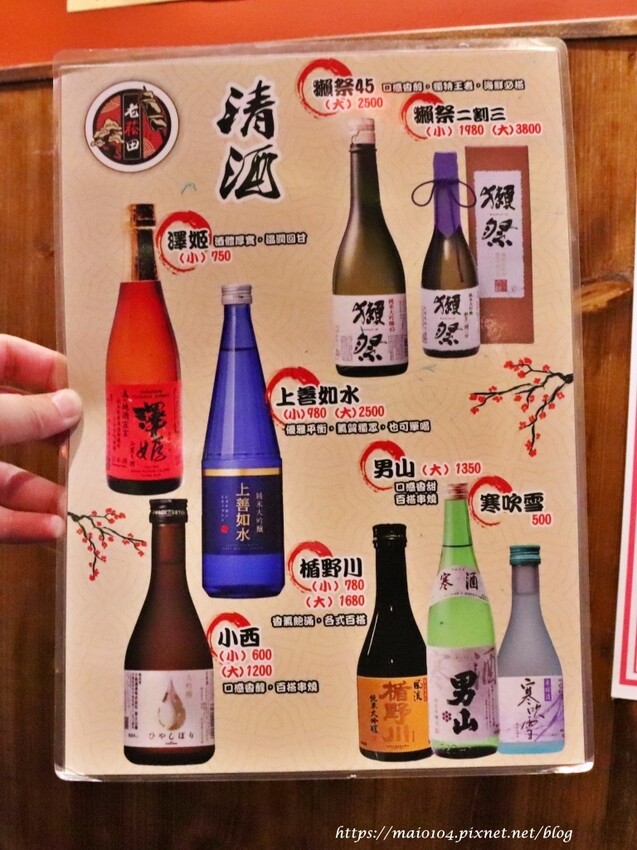 老翁田
清酒
獺祭45 口感香醇，獨特王者，海鮮必搭
(大) 2500
獺祭二割三
(小) 1980 (大) 3800
獺祭
澤姬 酒體厚實，溫潤回甘
(小) 750
純米大吟釀45
獺祭
純米大吟釀
獺祭
澤姬
上善如水
(小) 980 (大) 2500
優雅平衡，氣質獨眾，也可單喝
純米大吟釀
上善如水
男山 (大) 1350
口感香甜
百搭串燒
寒吹雪
500
楯野川
(小) 780
(大) 1680
香氣飽滿，各式百搭
小西
(小) 600
(大) 1200
口感香醇，百搭串燒
大吟釀
ひやしぼり
純米大吟釀
楯野川
寒酒
男山
寒吹雪
https://maio104.pixnet.net/blog